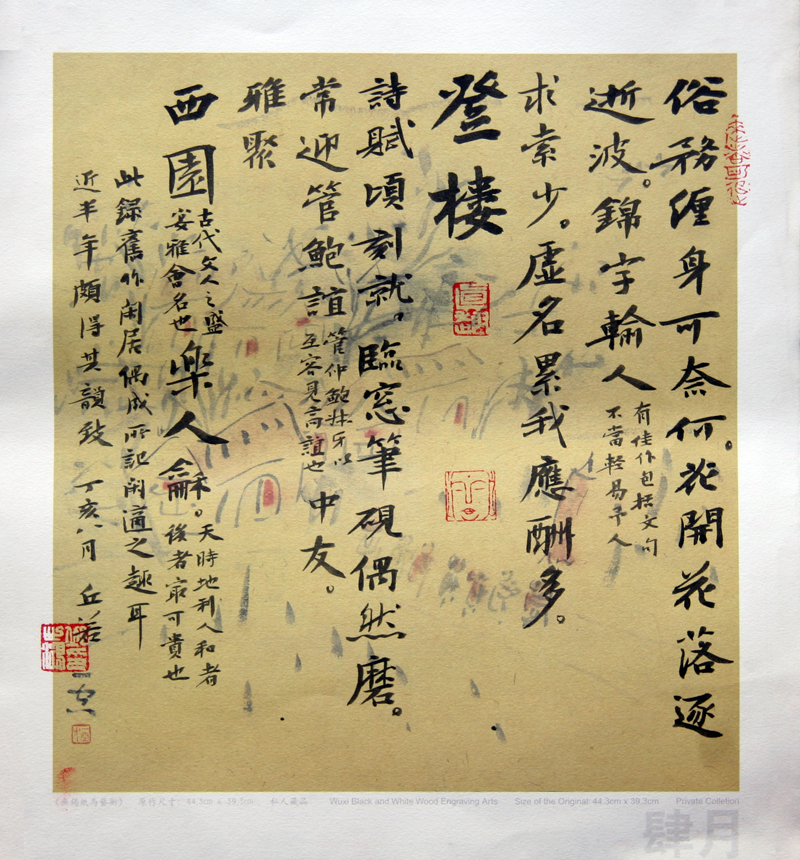 俗務纏身可奈何。花開花落逐
逝波。錦字輸人
有佳作包括文句
不當輕易予人
求索少。虛名累我應酬多。
登樓
詩賦頃刻就。臨窓筆硯偶然磨。
常迎管鮑誼
管仲鮑叔牙以
互容見高誼也
中友。
雅聚
西園
古代文人之盛
宴雅會名也
樂人龢。
天時地利人和者
後者冣可貴也
此錄舊作閑居偶成所記閑適之趣耳
近半年頗得其韻致 丁亥八月 丘
原作尺寸：44.3cm x 39.5cm 私人藏品 Wuxi Black and White Wood Engraving Arts Size of the Original: 44.3cm x 39.3cm Private Colletion
肆月